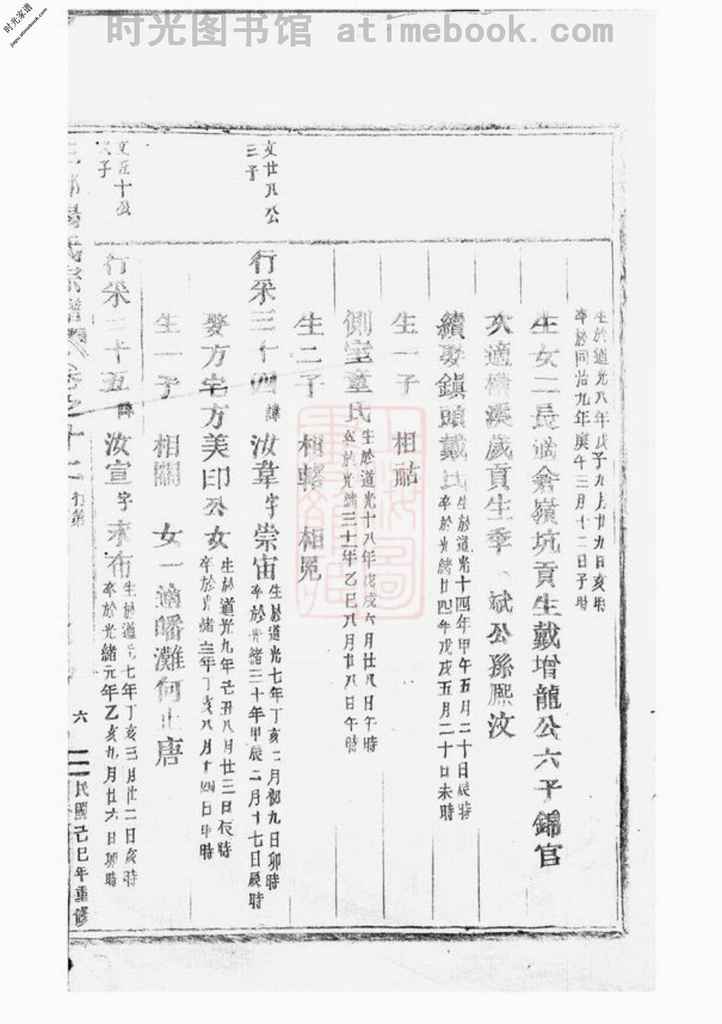 时光图书馆 atimebook.com
时光家谱
生於道光八年戊子九月廿九日亥時
卒於同治九年庚午三月十二日子時
生女二長適倉嶺坑貢生戴增龍公六子錦官
次適 溪歲貢生季 斌公孫熙汶
續娶鎮頭戴氏
生於道光十四年甲午五月二十日辰時
卒於光緒廿四年戊戌五月二十日未時
生一子 相
側室章氏
生於道光十八年戊戌六月廿八日午時
卒於光緒三十一年乙巳八月廿八日午時
生二子 相 相冕
文廿八公
三子
行采三十四 諱 汝葦 字 崇宙
生於道光七年丁亥 月初九日卯時
卒於光緒三十年甲辰二月十七日辰時
娶方宅方美印公女
生於道光九年己丑八月廿三日辰時
卒於光緒 年丁亥八月十四日申時
生一子 相關 女一適皤灘何止唐
文 十公
子
行采三十五 諱 汝宣 字 來布
生於道光七年丁亥三月廿二日亥時
卒於光緒元年乙亥九月廿六日卯時
氏宗譜 卷之十二 行第
六
民國己巳年重修